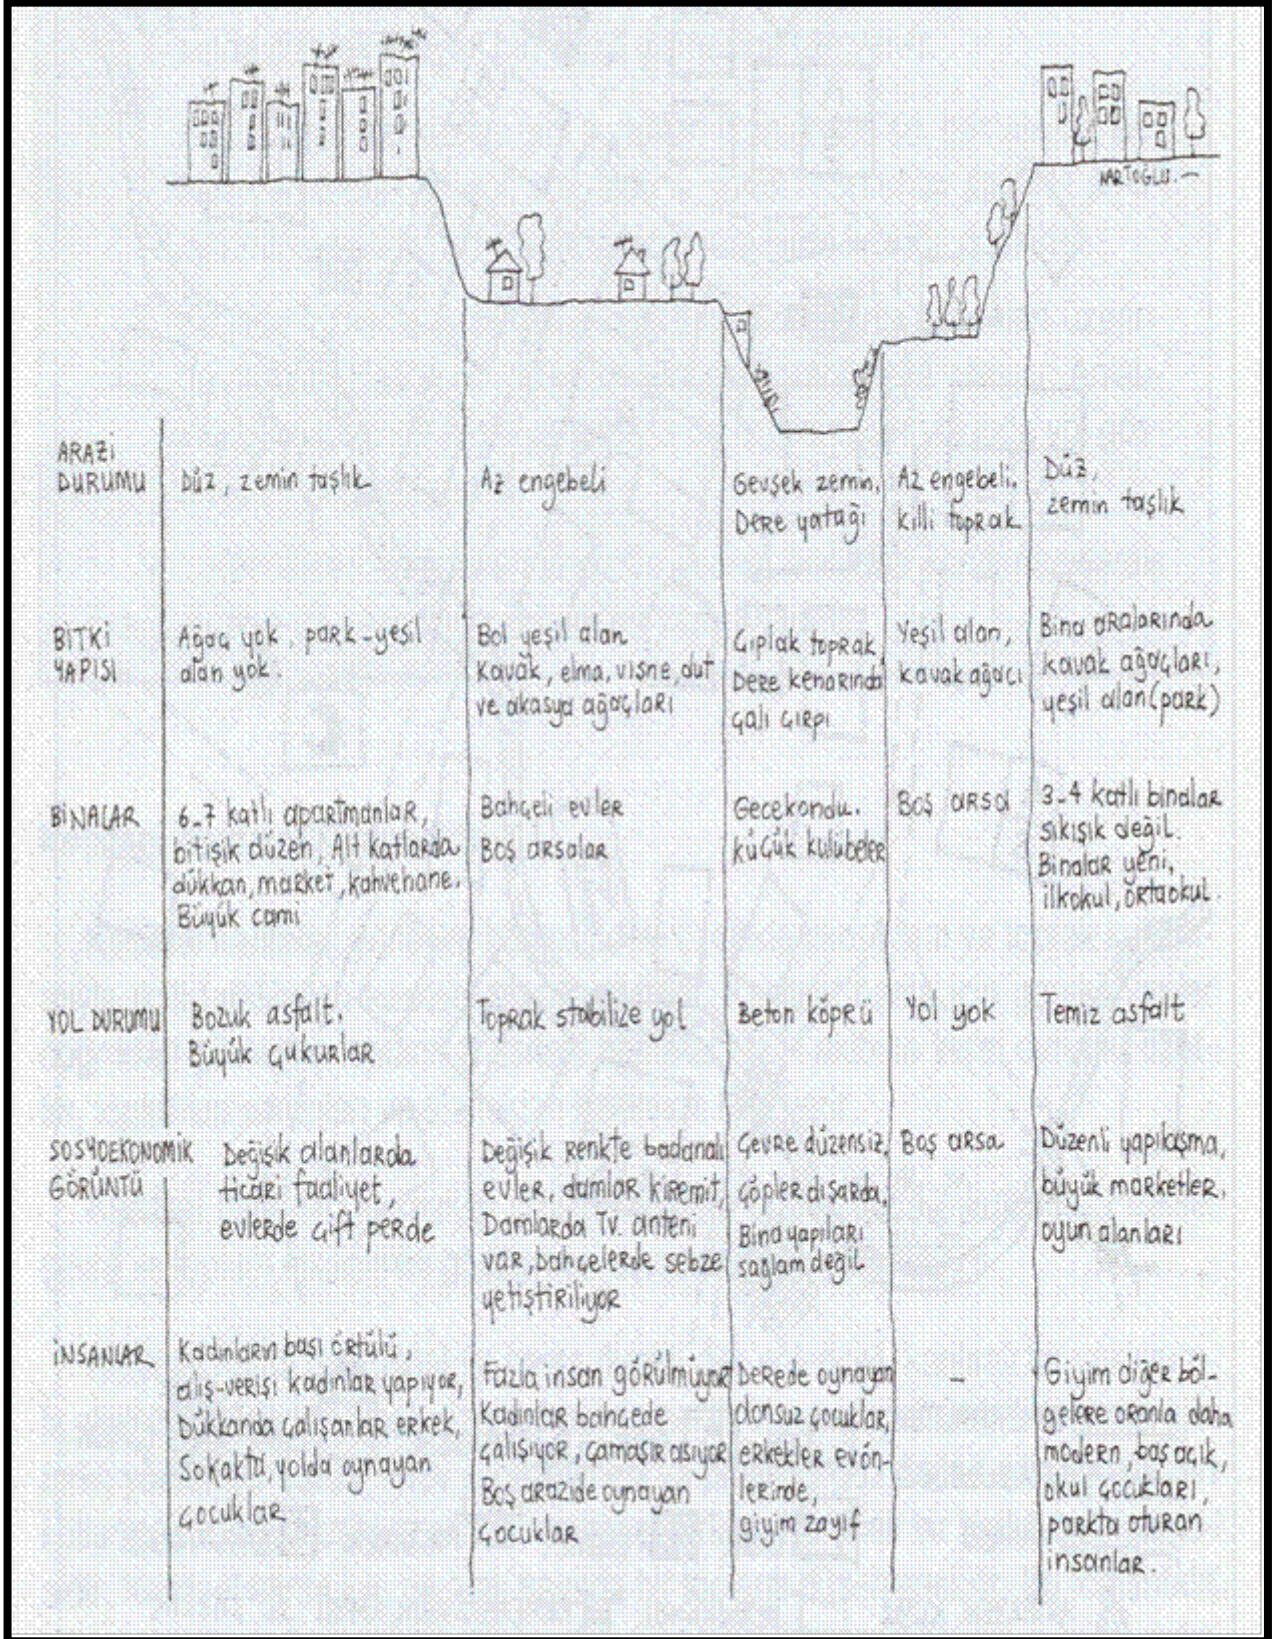 NARTOĞLU.
ARAZİ
DURUMU
Düz, zemin taşlık
Az engebeli
Gevşek zemin,
Dere yatağı
Az engebeli.
killi toprak
Düz,
zemin taşlık
BİTKİ
YAPISI
Ağaç yok, park-yeşil
alan yok.
Bol yeşil alan
Kavak, elma, vişne, dut
ve akasya ağaçları
Çıplak toprak
Dere kenarında
çalı çırpı
Yeşil alan,
kavak ağacı
Bina aralarında
kavak ağaçları,
yeşil alan (park)
BİNALAR
6-7 katlı apartmanlar,
bitişik düzen, Alt katlarda
dükkan, market, kahvehane.
Büyük cami
Bahçeli evler
Boş arsalar
Gecekondu.
küçük kulübeler
Boş arsa
3-4 katlı binalar
sıkışık değil.
Binalar yeni,
ilkokul, ortaokul.
YOL DURUMU
Bozuk asfalt.
Büyük çukurlar
Toprak stabilize yol
Beton köprü
Yol yok
Temiz asfalt
SOSYOEKONOMİK
GÖRÜNTÜ
Değişik alanlarda
ticari faaliyet,
evlerde çift perde
Değişik renkte badanalı
evler, damlar kiremit,
Damlarda Tv. anteni
var, bahçelerde sebze
yetiştiriliyor
Çevre düzensiz,
çöpler dışarda,
Bina yapıları
sağlam değil
Boş arsa
Düzenli yapılaşma,
büyük marketler,
oyun alanları
İNSANLAR
Kadınların başı örtülü,
alış-verişi kadınlar yapıyor,
Dükkanda çalışanlar erkek,
Sokakta, yolda oynayan
çocuklar
Fazla insan görülmüyor
Kadınlar bahçede
çalışıyor, çamaşır asıyor
Boş arazide oynayan
çocuklar
Derede oynayan
donsuz çocuklar,
erkekler evön-
lerinde,
giyim zayıf
-
Giyim diğer böl-
gelere oranla daha
modern, baş açık,
okul çocukları,
parkta oturan
insanlar.